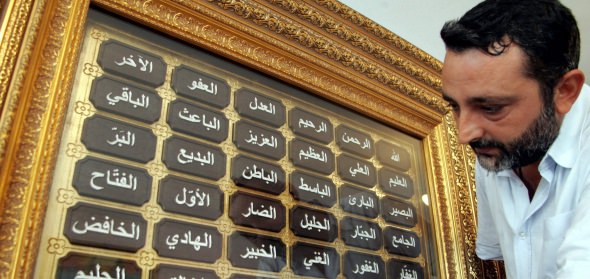 الله الرحمن الرحيم العدل العفو الآخر
العليم العلي العظيم العزيز الباعث الباقي
البصير البارئ الباسط الباطن البديع البَرّ
الجامع الجبّار الجليل الضار الأوّل الفتاح
الغفار الغفور الغني الخبير الهادي الخافض
الحليم